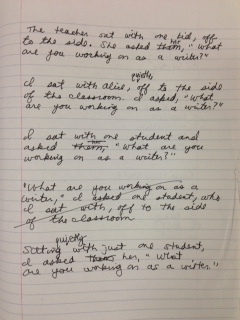 The teacher sat with one kid, off
to the side. She asked them, "What
are you working on as a writer?"
quietly
I sat with Alice, off to the side
of the classroom. I asked, "What
are you working on as a writer?"
I sat with one student and
asked them, "What are you
working on as a writer?"
"What are you working on as a
writer," I asked one student, who
I sat with, off to the side
of the classroom
quietly
Sitting with just one student,
I asked them her, "What
are you working on as a writer."